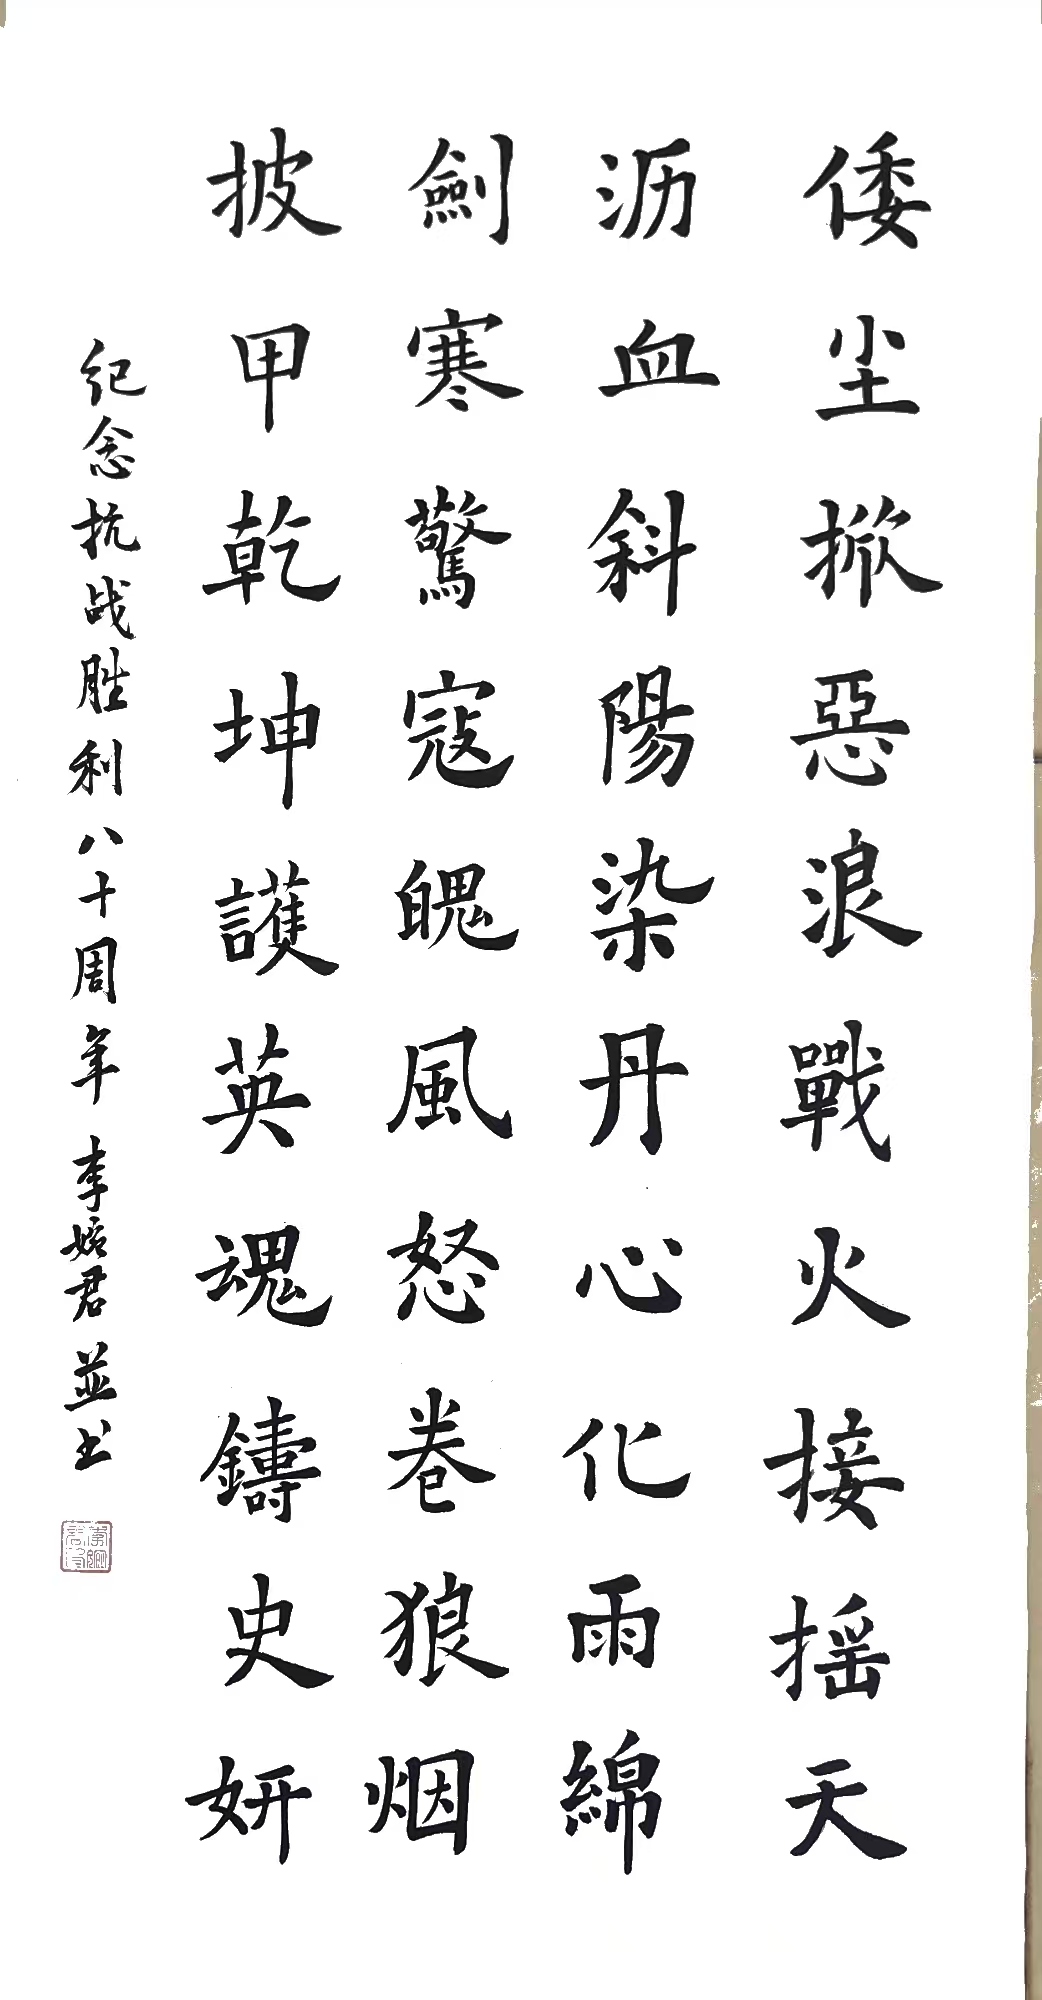 倭尘掀惡浪戰火接摇天
沥血斜陽染丹心化雨綿
劍寒驚寇魄風怒卷狼烟
披甲乾坤護英魂鑄史妍
纪念抗战胜利八十周年 李君並书